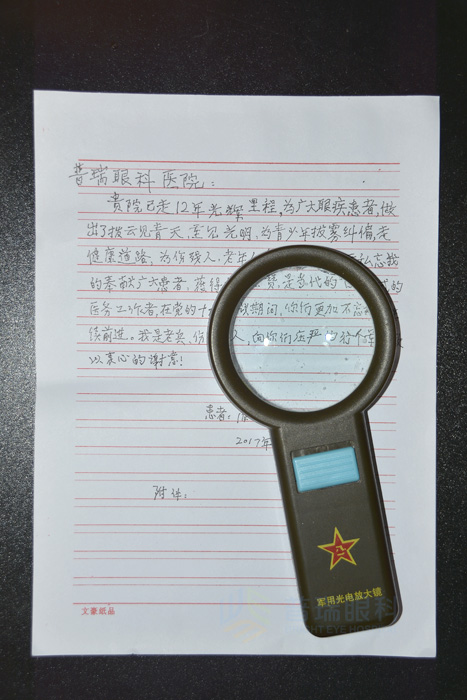 普瑞眼科医院：
贵院已走12年光辉里程，为广大眼疾患者，做
出了拨云见青天，重见光明，为青少年拔雾纠偏，走
健康道路，为伤残人、老年人 忘我
的奉献广大患者，获得 赞，是当代的
医务工作者，在党的十 期间，你们更加不忘
续前进。我是老兵，伤 人，向你们庄严的行个
以衷心的谢意！
患者：
2017年
附件：
文豪纸品
军用光电放大镜
普瑞眼科